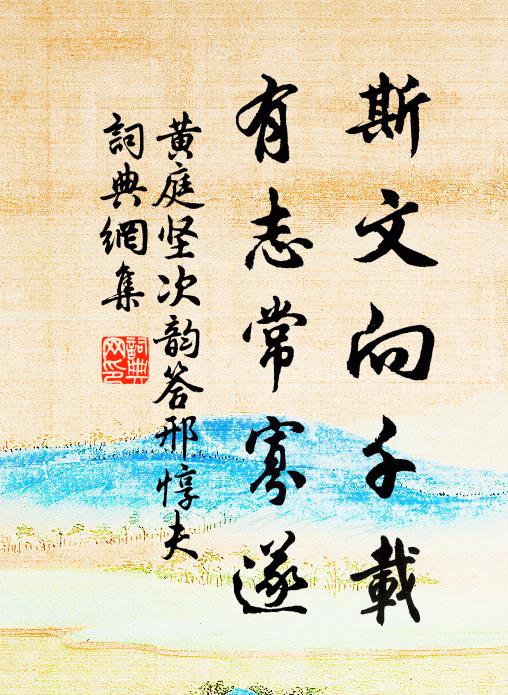 斯文向千載
有志常寡遂
黃庭坚次韵答邢惇夫
詞典網集
詞典網印